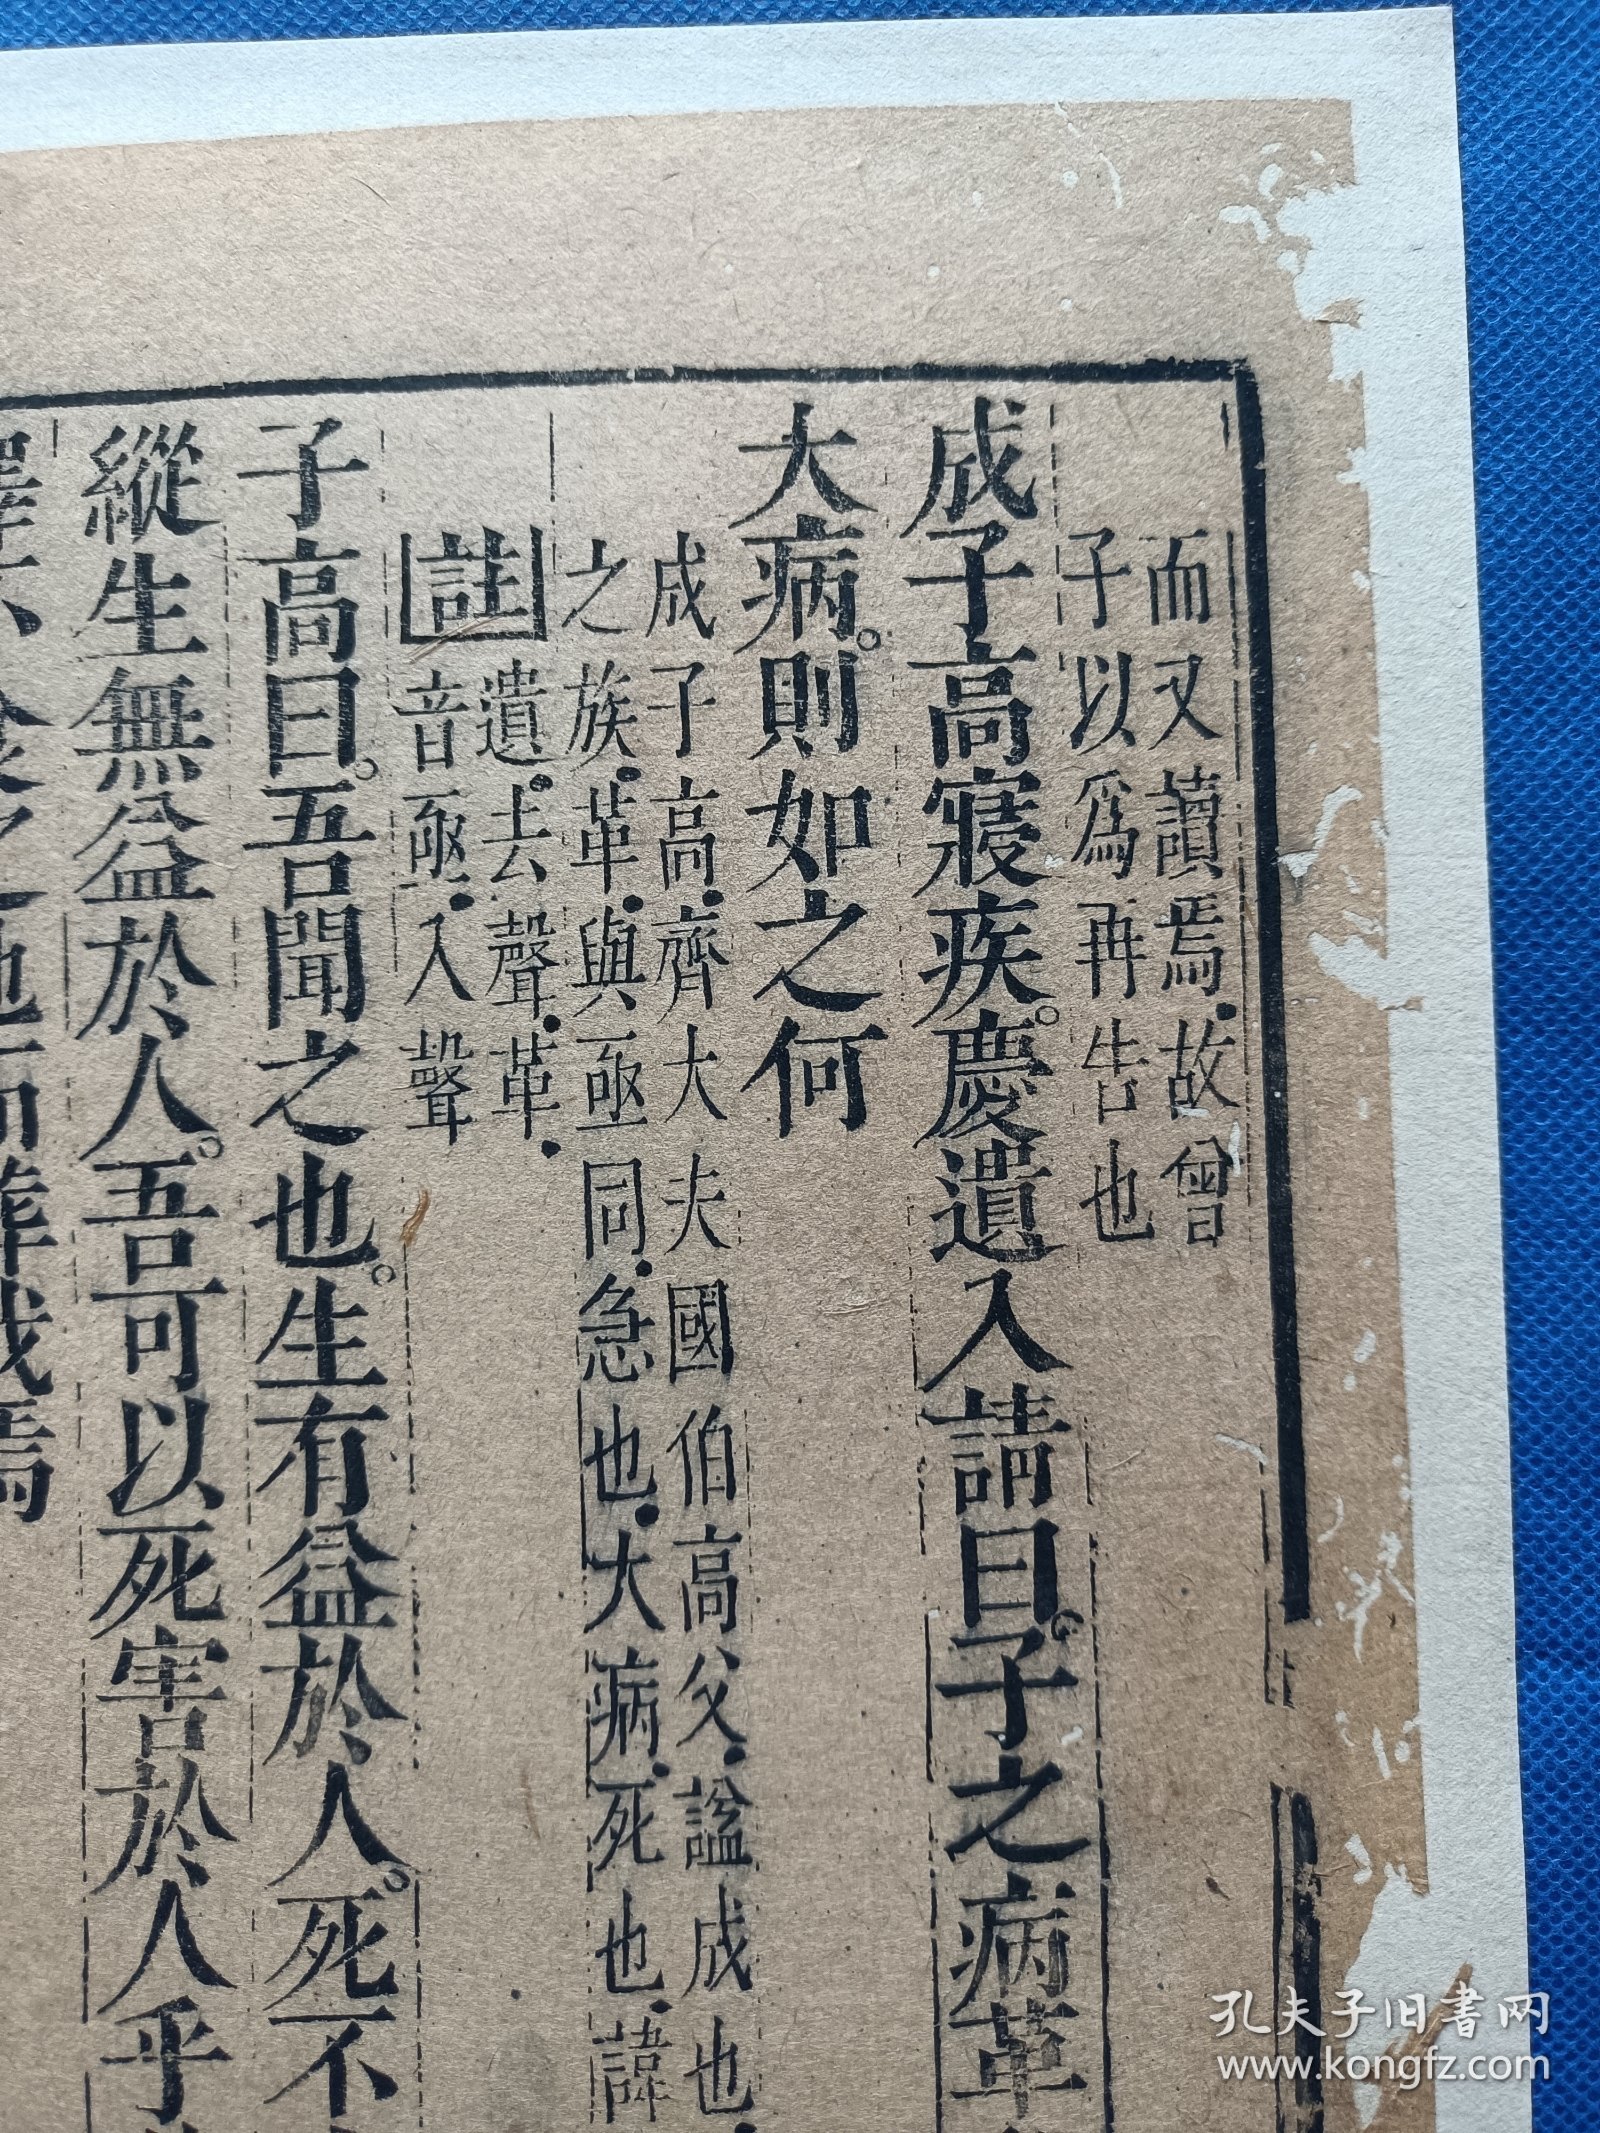 而又讀焉故曾
子以爲再告也
成子高寢疾慶遺入請曰子之病革
大病則如之何
成子高齊大夫國伯高父諡成也
之族革與亟同急也大病死也諱
註遺去聲革
音亟入聲
子高曰吾聞之也生有益於人死不
縱生無益於人吾可以死害於人乎
孔夫子旧書网
www.kongfz.com